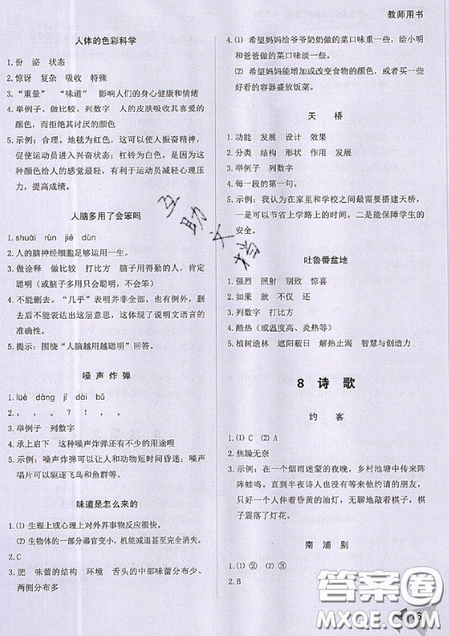 教师用书
人体的色彩科学
1. 份 泌 状态
2. 惊讶 复杂 吸收 特殊
3. “重量” “味道” 影响人们的身心健康和情绪
4. 举例子、做比较、列数字 人的皮肤吸收其喜爱的
颜色，而拒绝其讨厌的颜色
5. 示例：合理。地毯为红色，这可以使人振奋精神，
促使运动员进入兴奋状态；杠铃为白色，是因为
这种颜色给人的感觉最轻，有利于运动员减轻心理压
力，提高成绩。
人脑多用了会笨吗
1. shuāi rùn jié dùn
2. 人的脑神经细胞足够运用一生。
3. 做诠释 做比较 打比方 脑子用得勤的人，肯定
聪明（或脑子多用只会聪明，不会笨）
4. 不能删去。“几乎”表明并非全部，也有例外，删
去后不能表达出这层意思，这表现了说明文语言的
准确性。
5. 提示：围绕“人脑越用越聪明”回答。
噪声炸弹
1. lüè dàng jí dài bǔ
2. ， 。 ， ？ ， ， 。
3. 举例子 列数字
4. 承上启下 这种噪声炸弹还有不少的用途喔
5. 示例：噪声可以让人和动物短时间昏迷；噪声
唱片可以驱逐飞鸟和鱼群等。
味道是怎么来的
1. ⑴ 生理上或心理上对外界事物反应很快。
⑵ 生物体的一部分器官变小，机能减退甚至完全消失。
2. C
3. 肥 味蕾的结构 环境 舌头的中部味蕾少，
两侧分布多
⑴ 希望妈妈给爷爷奶奶做的菜口味重一些，给小明
和爸爸做的菜口味淡一些。
⑵ 希望妈妈能增加或改变食物的颜色，或者买一些好
看的容器盛放饭菜。
天桥
1. 功能 发展 设计 效果
2. 分类 结构 形式 作用 发展
3. 举例子 列数字
4. 每一段的第一句。
5. 示例：我认为在家里和学校之间最需要搭建天桥，
一是可以节省上学路上的时间，二是能保障学生的
安全。
吐鲁番盆地
1. 强烈 照射 别致 惊喜
2. 如果 就 不仅 还
3. 列数字 打比方
4. 酷热（或高温、炎热等）
5. 植树造林 遮阳蔽日 解热止渴 智慧与创造力
8 诗歌
约客
1. ⑴ ② ⑵ A
2. 焦躁无奈
3. 示例：在一个烟雨迷蒙的夜晚，乡村池塘中传来阵
阵蛙鸣。直到半夜诗人也没有等来他约请的朋友，
只好一个人伴着昏黄的油灯，无聊地敲着棋子，棋
子震落了灯花。
南浦别
1. ⑴ ② ⑵ ③
2. B
互助文档
答案圈
MXQE.COM